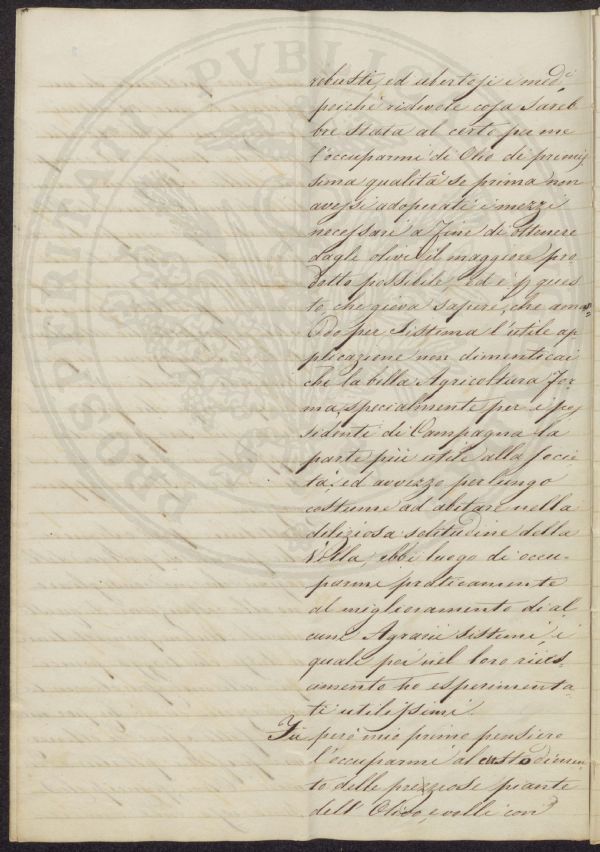 robusti, ed ubertosi i med.i
poichè ridevole cosa sareb
bre stata al certo per me
l'occuparmi di Olio di premis
sima qualità se prima non
avessi adoperati i mezzi
necessari a fine di ottenere
dagli olivi il maggiore pro
dotto possibile. Ed è p ques
to che giova sapere, che aman
do per sistema l'utile ap
plicazione non dimenticai
che la bella Agricoltura for
ma, specialmente per i pos
sidenti di Campagna la
parte più utile alla socie
tà; ed avvezzo per lungo
costume ad abitare nella
deliziosa solitudine della
Villa ebbi luogo di occu-
parmi praticamente
al miglioramento di al
cuni Agrarii sistemi, i
quali poi nel loro risies-
amento ho esperimenta-
ti utilissimi.
Fu però mio primo pensiero
l'occuparmi al custodimen
to delle prezziose piante
dell' Olivo, e volli con
PROSPERITATI PVBLIC